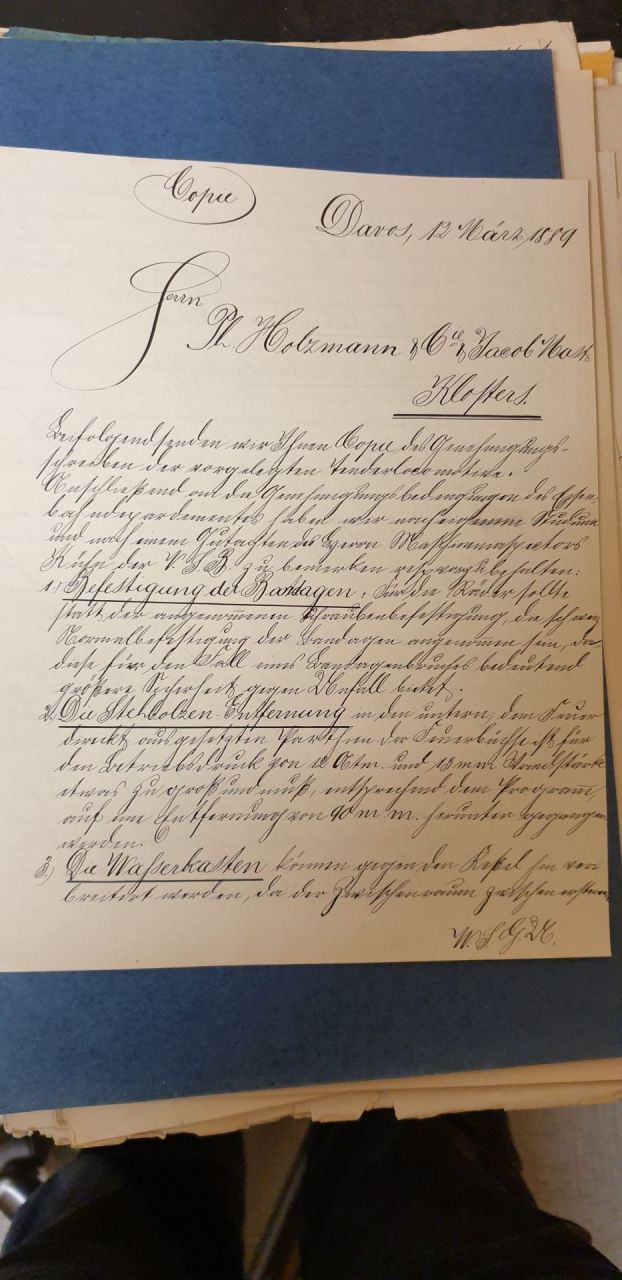 Copie
Davos, 12 März 1889
Herrn
Ph. Holzmann & Cie & Jacob Mast
Klosters.
Beifolgend senden wir Ihnen Copie des Genehmigungs-
schreiben der vorgelegten Tenderlocomotive.
Anschließend an die Genehmigungsbedingungen des Eisen
bahndepartementes haben wir nach Studium
und nach einem Gutachten des Herrn Maschineninspectors
Kühn der V.S.B. zu bemerken resp. vorzubehalten:
1.) Befestigung der Bandagen. Für die Räder sollte
statt der angenommenen Schraubenbefestigung, die
Normalbefestigung der Bandagen angenommen sein, da
diese für den Fall eines Bandagenbruches bedeutend
größere Sicherheit gegen Unfall bietet.
2.) Die Stehbolzen-Entfernung in den untern, dem Feuer
direkt ausgesetzten Parthien der Feuerbüchse ist für
den Betriebsdruck von 12 Atm. und 13 mm Wandstärke
etwas zu groß und muß, entsprechend dem Programm,
auf eine Entfernung von 90 m.m. herunter gegangen
werden.
3.) Die Wasserkasten können gegen den Kessel hin ver-
breitert werden, da der Zwischenraum zwischen